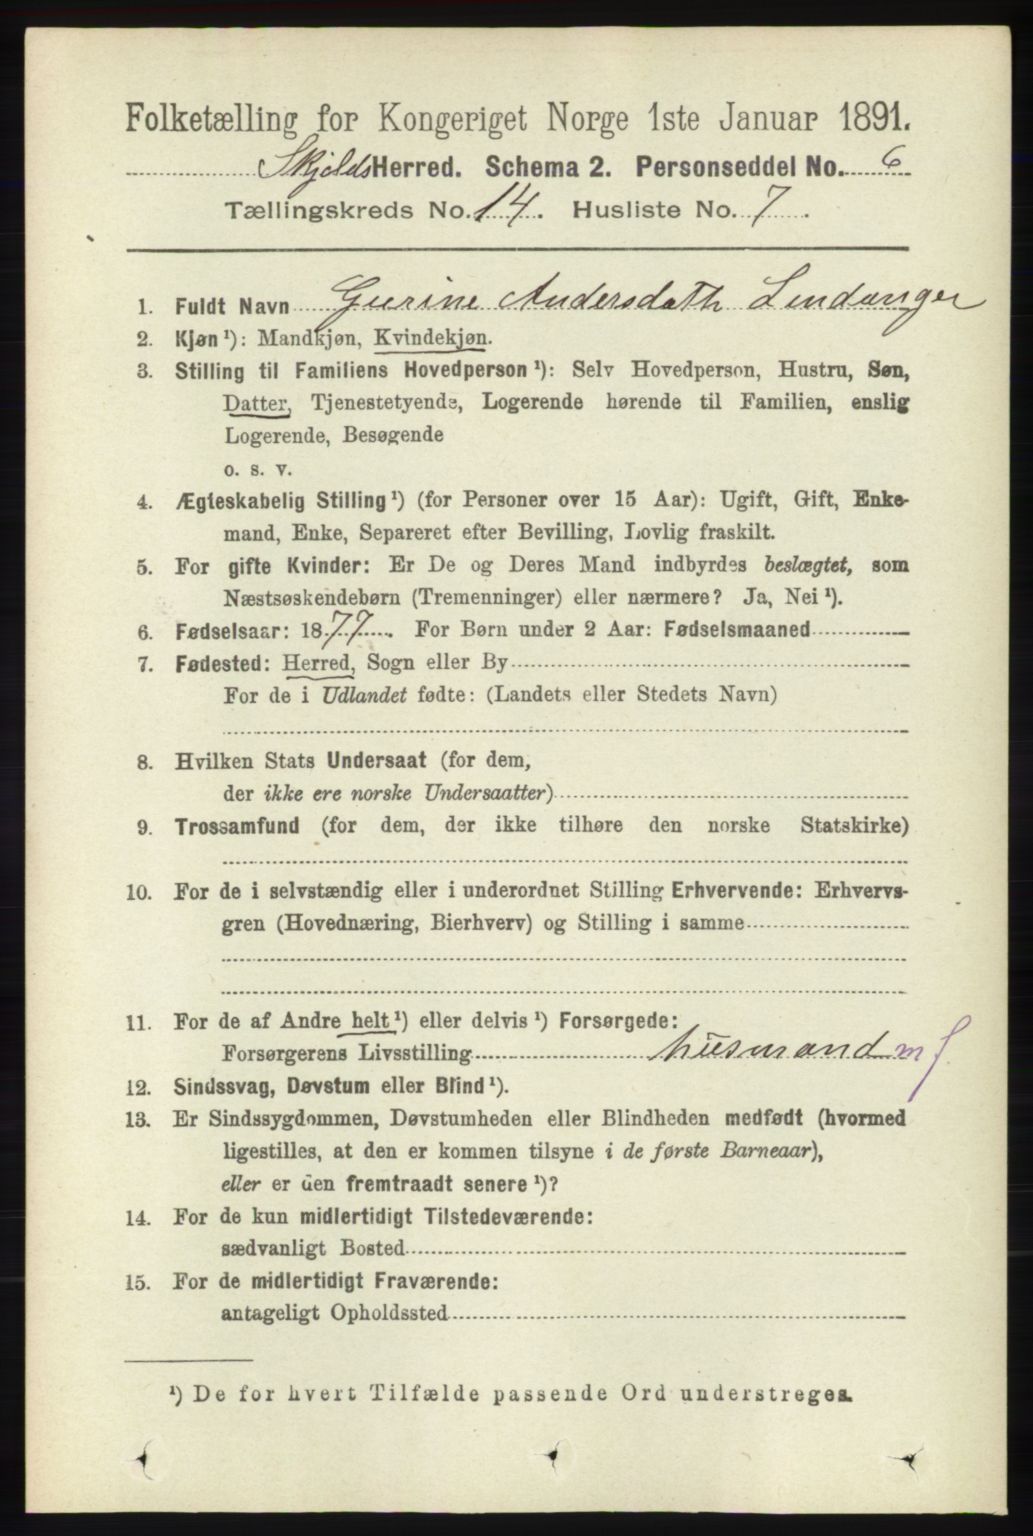 Folketælling for Kongeriget Norge 1ste Januar 1891.
Skjolds Herred. Schema 2. Personseddel No. 6
Tællingskreds No. 14. Husliste No. 7.
1. Fuldt Navn Gurine Andersdath Lindanger
2. Kjøn ¹): Mandkjøn, Kvindekjøn.
3. Stilling til Familiens Hovedperson ¹): Selv Hovedperson, Hustru, Søn,
Datter, Tjenestetyende, Logerende hørende til Familien, enslig
Logerende, Besøgende
o. s. v.
4. Ægteskabelig Stilling ¹) (for Personer over 15 Aar): Ugift, Gift, Enke-
mand, Enke, Separeret efter Bevilling, Lovlig fraskilt.
5. For gifte Kvinder: Er De og Deres Mand indbyrdes beslægtet, som
Næstsøskendebørn (Tremenninger) eller nærmere? Ja, Nei ¹).
6. Fødselsaar: 1877. For Børn under 2 Aar: Fødselsmaaned
7. Fødested: Herred, Sogn eller By
For de i Udlandet fødte: (Landets eller Stedets Navn)
8. Hvilken Stats Undersaat (for dem,
der ikke ere norske Undersaatter)
9. Trossamfund (for dem, der ikke tilhøre den norske Statskirke)
10. For de i selvstændig eller i underordnet Stilling Erhvervende: Erhvervs-
gren (Hovednæring, Bierhverv) og Stilling i samme
11. For de af Andre helt ¹) eller delvis ¹) Forsørgede:
Forsørgerens Livsstilling husmand m f.
12. Sindssvag, Døvstum eller Blind ¹).
13. Er Sindssygdommen, Døvstumheden eller Blindheden medfødt (hvormed
ligestilles, at den er kommen tilsyne i de første Barneaar),
eller er den fremtraadt senere ¹)?
14. For de kun midlertidigt Tilstedeværende:
sædvanligt Bosted
15. For de midlertidigt Fraværende:
antageligt Opholdssted
¹) De for hvert Tilfælde passende Ord understreges.